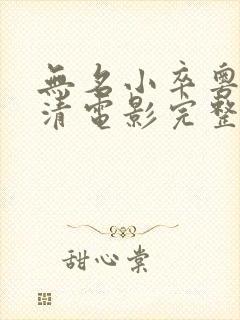 無名小卒粵
清電影完整
甜心棠